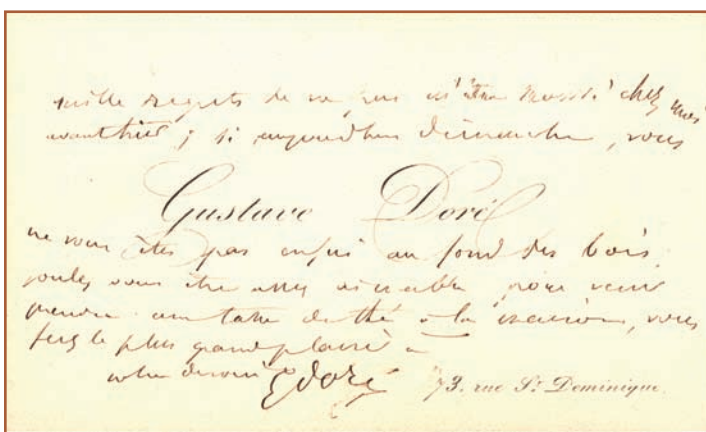 mille regrets de ne pas m'être trouvé chez moi
avant hier ; si aujourdhui dimanche, vous
Gustave Doré
ne vous êtes pas enfui au fond des bois,
voulez vous être assez aimable pour venir
prendre une tasse de thé à la maison, vous
ferez le plus grand plaisir à
votre dévoué GDoré
73. rue St. Dominique.